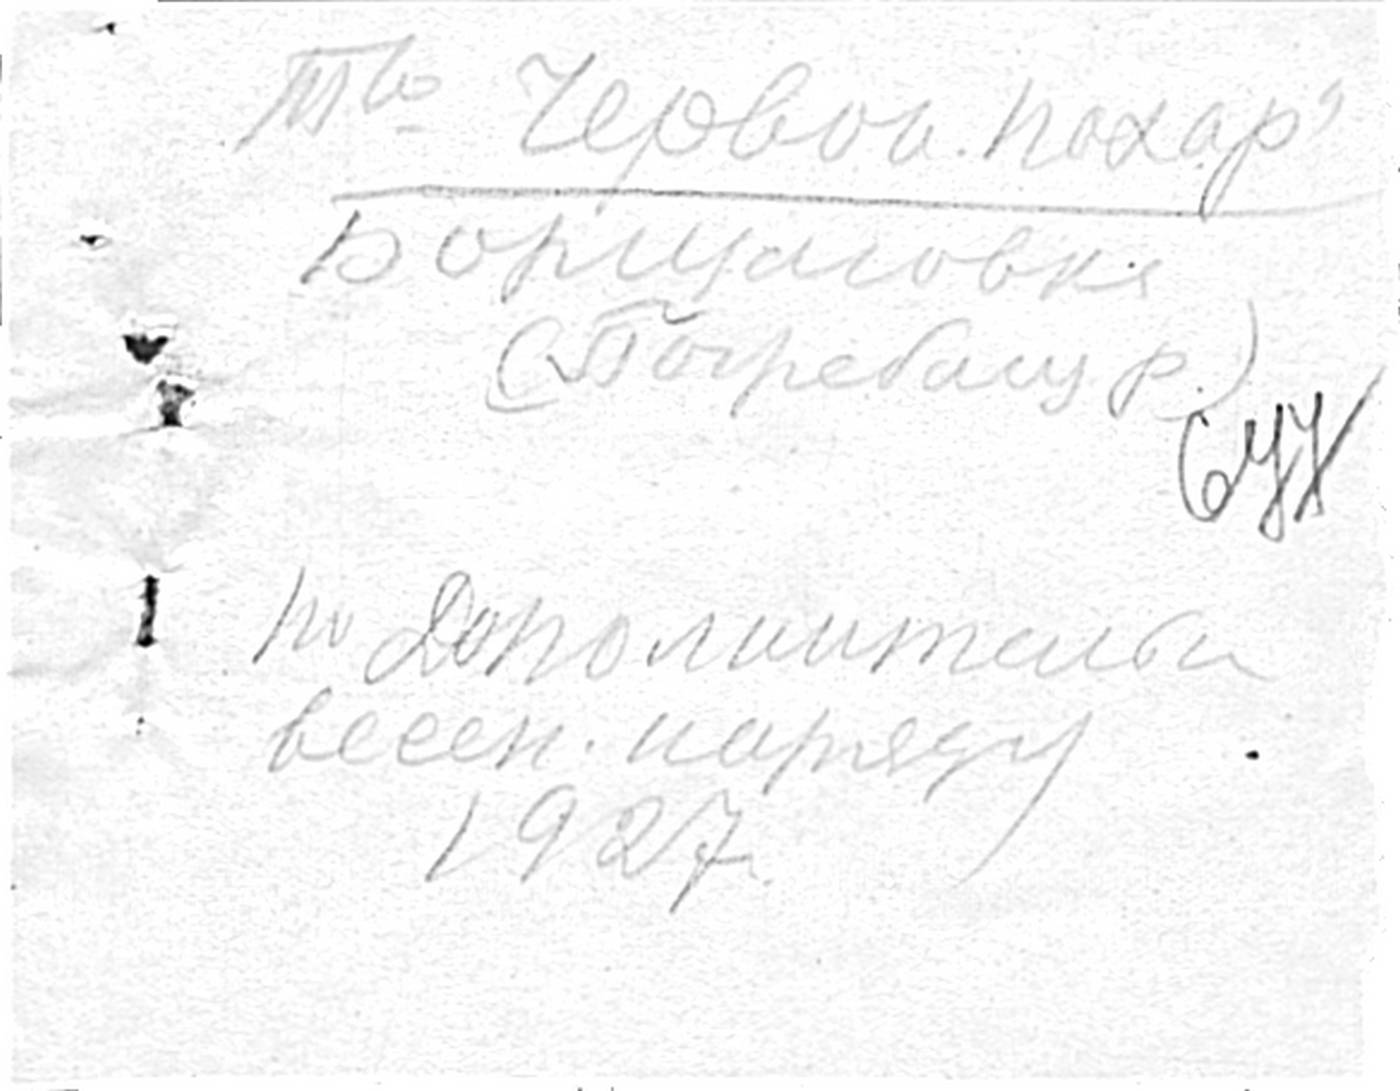 Тво Червон. пахар'
Борщаговке
(Погребищ р.)
по Дополнительн
весен. наряду
1927.